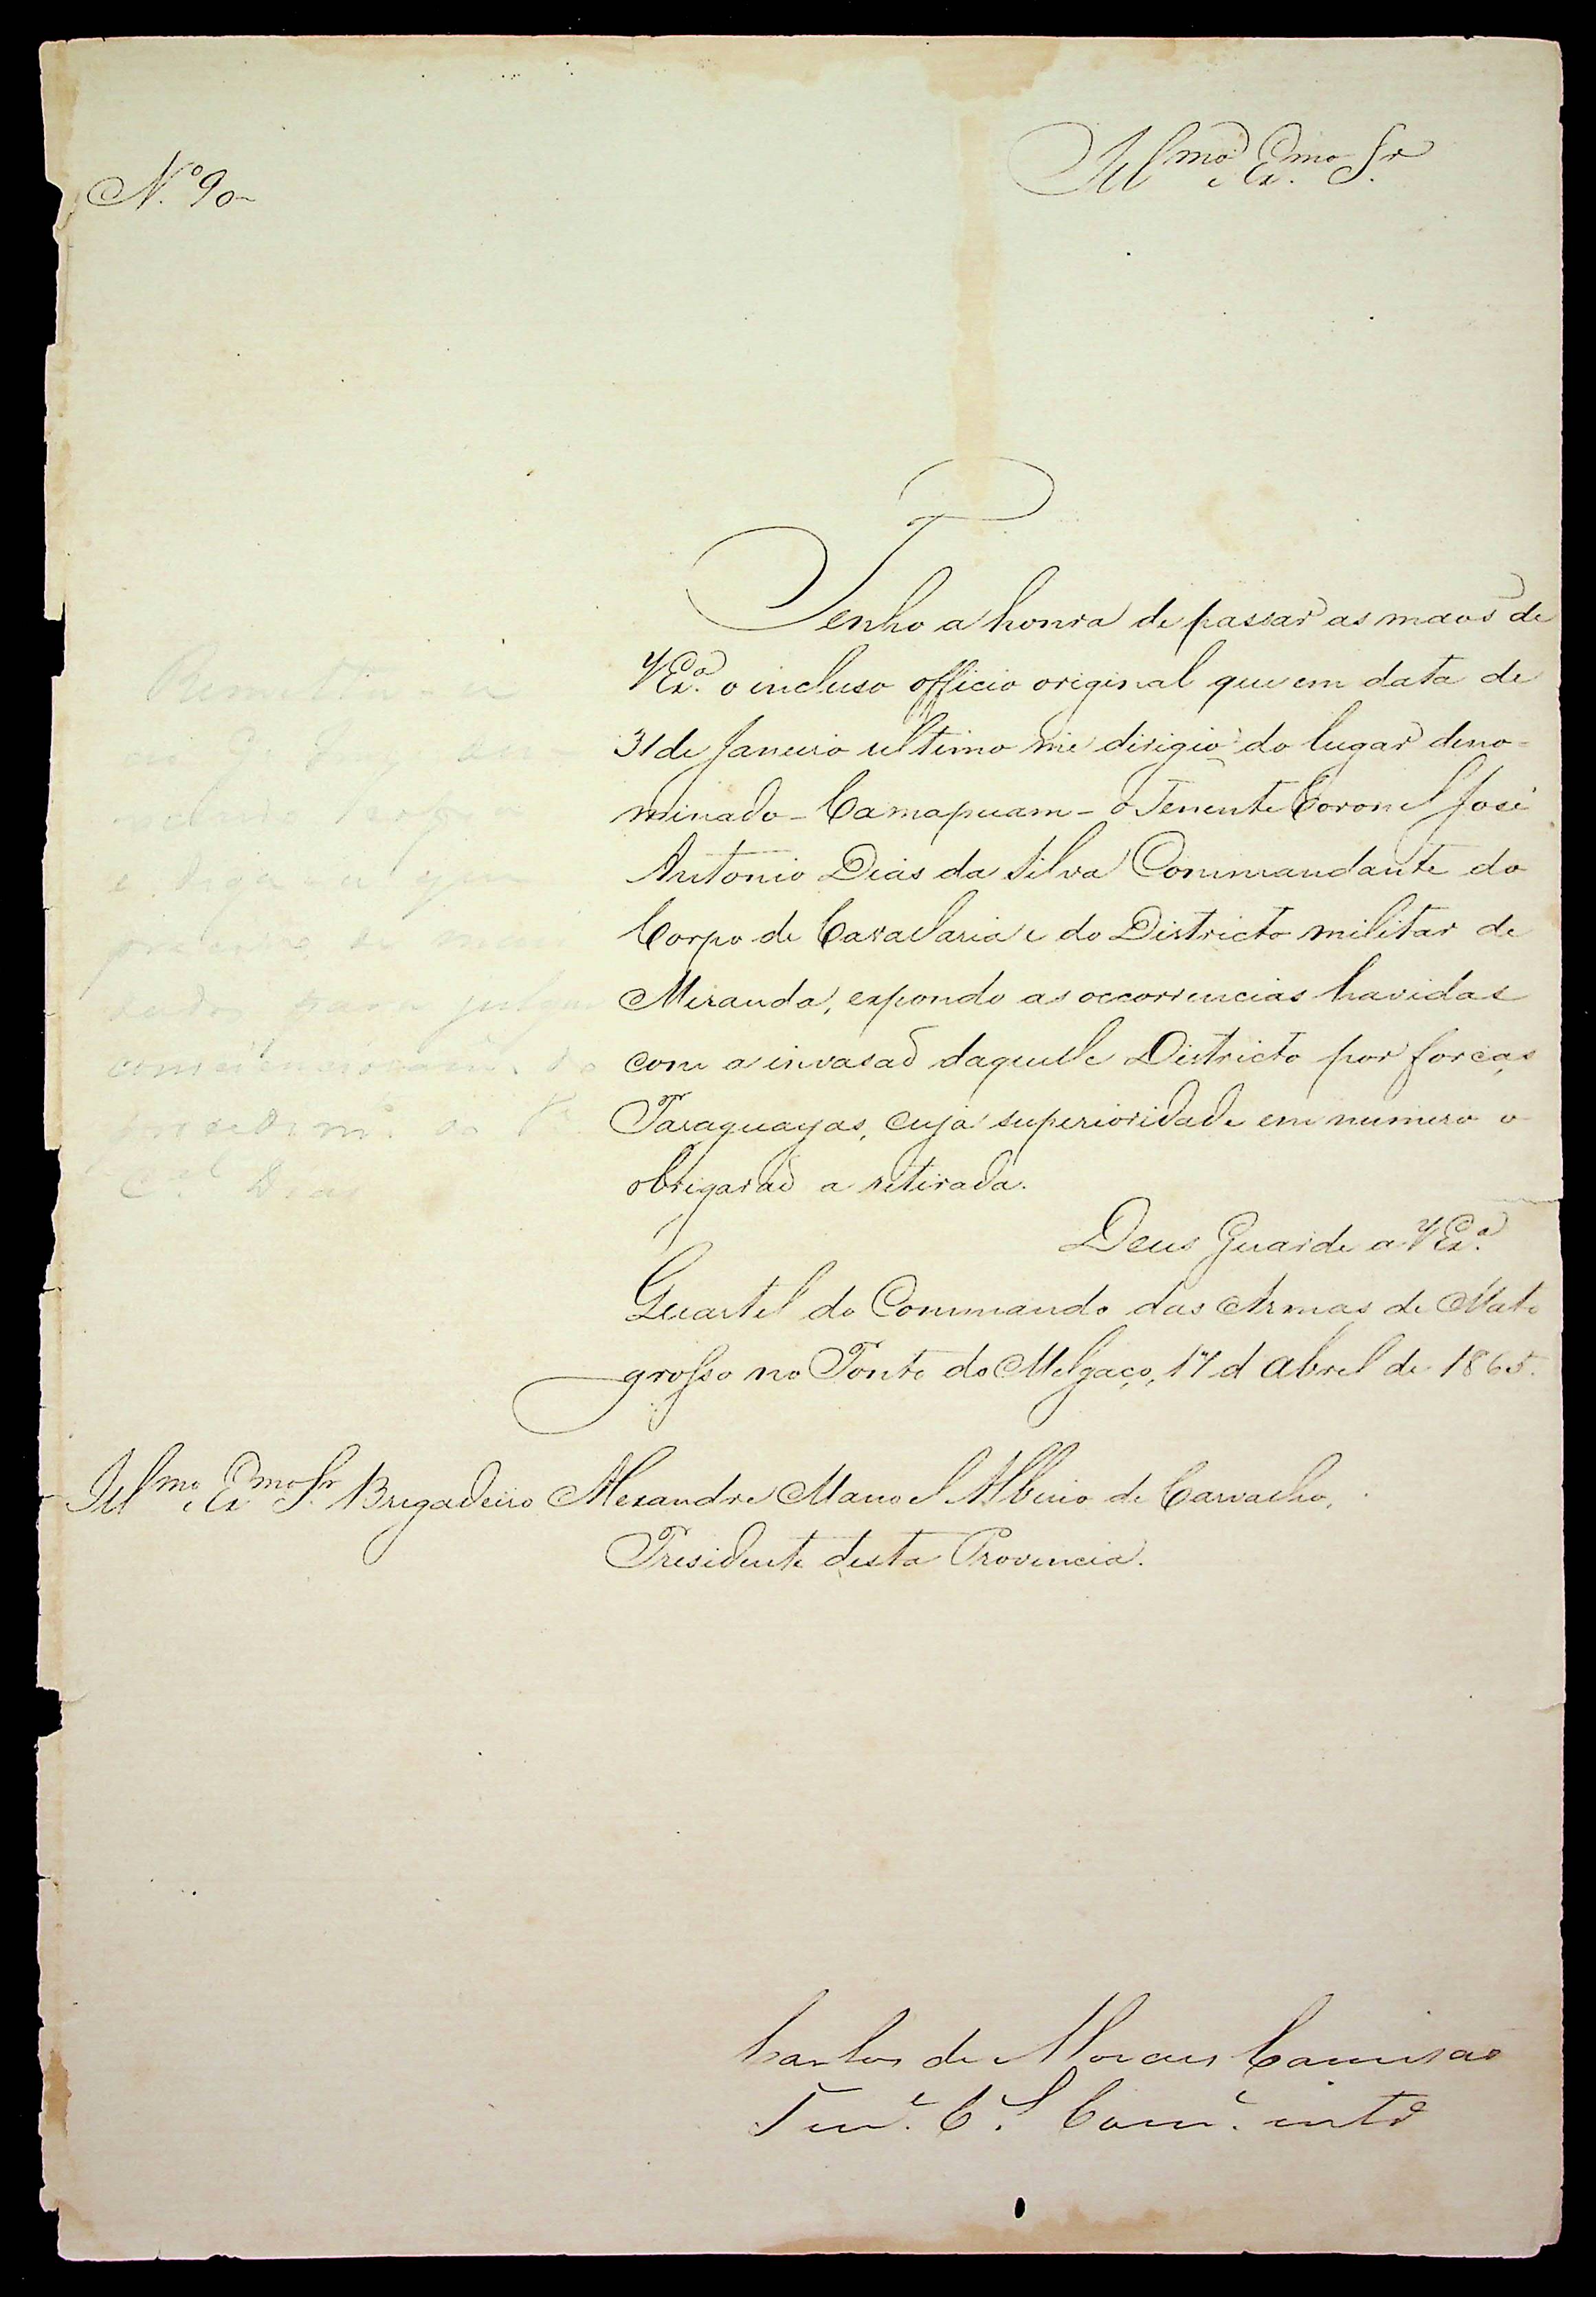 N.º 90
Illmo e Exmo Sr.
Tenho a honra de passar as maos de
VExª. o incluso officio original que em data de
31 de Janeiro ultimo me dirigio do lugar deno-
minado - Camapuam - o Tenente Coronel José
Antonio Dias da Silva Commandante do
Corpo de Cavallaria e do Districto militar de
Miranda, expondo as occorrencias havidas
com a invasaõ daquelle Districto por forças
Paraguayas, cuja superioridade em numero o
obrigaraõ a retirada.
Deus Guarde a VExª.
Quartel do Commando das Armas de Mato
grosso no Ponto do Melgaço, 17 d Abril de 1865.
Illmo e Exmo Sr. Brigadeiro Alexandre Manoel Albino de Carvalho,
Presidente desta Provincia.
Carlos de Moraes Camisaõ
Tene. Cel. Come. into
Remetta-se
e diga-se que
para julgar
do
procedimto. do
Cel. Dias